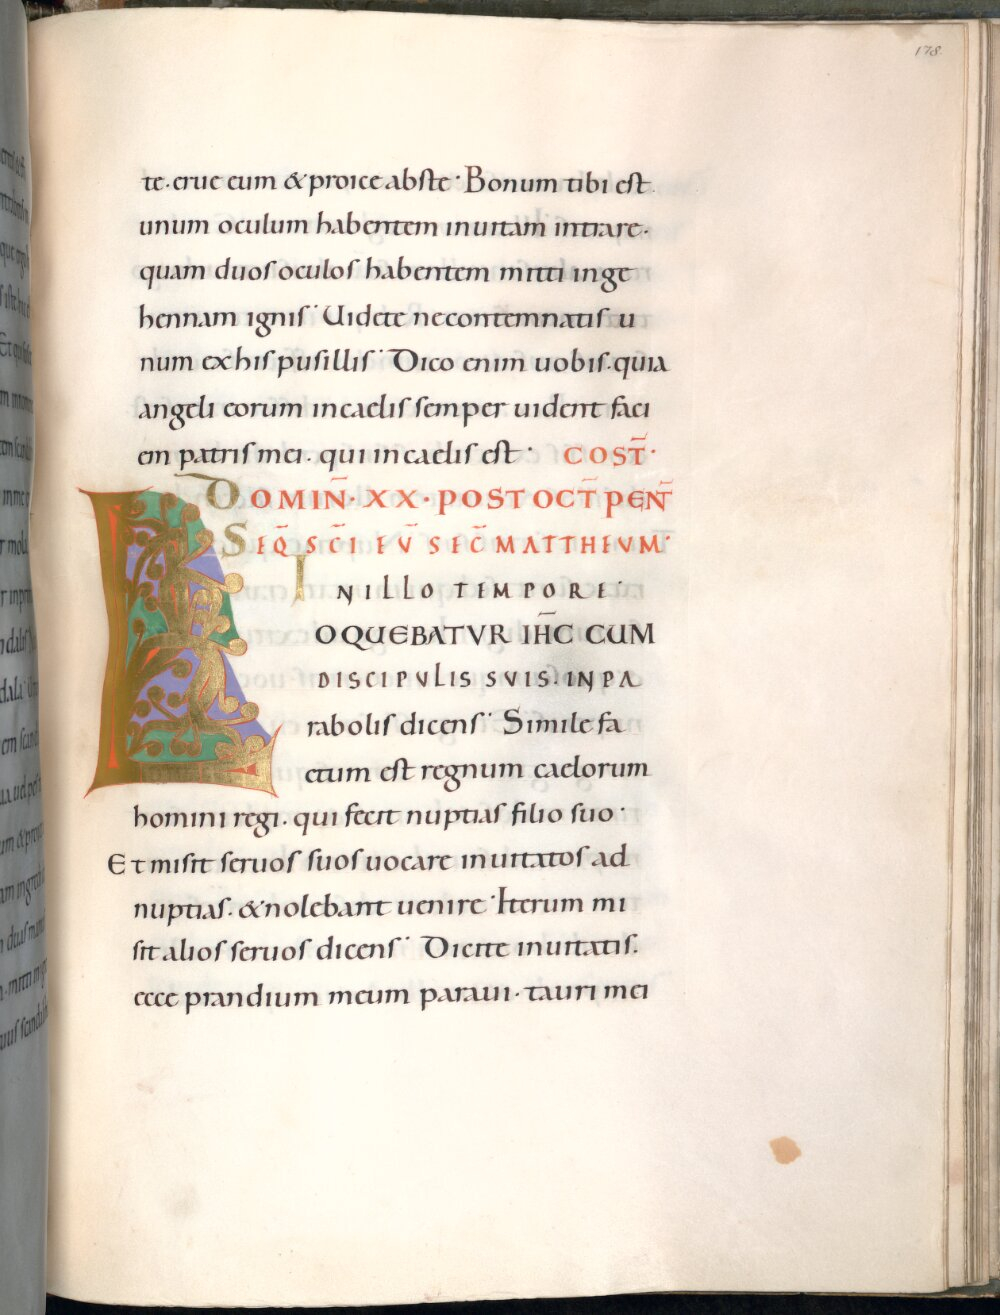 178.
te. erue eum & proice abste· Bonum tibi est.
unum oculum habentem inuitam intrare·
quam duos oculos habentem mitti inge
hennam ignis· Uidete necontemnatis u
num exhis pusillis· Dico enim uobis. quia
angeli eorum incaelis semper uident faci
em patris mei. qui incaelis est· COST̄·
DOMIN̄·XX·POST OCT̄ PEN̄T
SEQ̄ SC̄I EŪ SEC̄ MATTHEVM·
IN ILLO TEMPORE·
LOQUEBATVR IHC̄ CUM
DISCIPVLIS SVIS·IN PA
rabolis dicens· Simile fa
ctum est regnum caelorum
homini regi. qui fecit nuptias filio suo·
Et misit seruos suos uocare inuitatos ad
nuptias. & nolebant uenire· Iterum mi
sit alios seruos dicens· Dicite inuitatis.
ecce prandium meum paraui· tauri mei